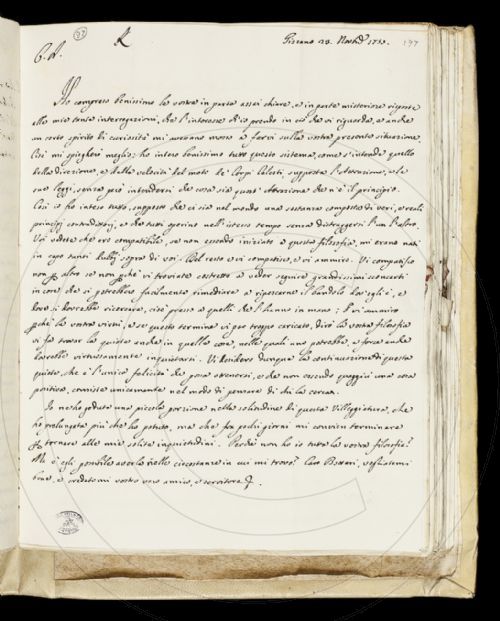 C. A.
Ho compreso benissimo la vostra in parte assai chiara, e in parte misteriosa risposta
alle mie tante interrogazioni, che l'interesse ch'io prendo in ciò che vi riguarda, e anche
un certo spirito di curiosità mi avevano mosso a farvi sulla vostra presente situazione
mi spiegherò meglio: ho inteso benissimo tutto questo sistema, come s'intende quello
della direzione, e della velocità del moto de' Corpi Celesti, supposta l'attrazione, e le
sue leggi, senza però intendersi che cosa sia quest'attrazione che n'è il principio.
Così io ho inteso tutto, supposto che ci sia nel mondo una sostanza composta di veri, e reali
principj contradittorj, e che tutti operino nell'istesso tempo senza distruggersi l'un l'altro.
Voi vedete che ero compatibile, se non essendo iniziato a questa filosofia, mi erano nati
in capo tanti dubbj sopra di voi. Del resto e vi compatisco, e vi ammiro. Vi compatisco
non per altro se non perché vi trovate costretto a veder seguire grandissimi sconcerti
in cose che si potrebbero facilmente rimediare a ripescarne il bandolo dov'egli è, e
dove si dovrebbe ricercare, cioè presso a quelli che l'hanno in mano: e vi ammiro
perché la vostra virtù, e se questo termine vi par troppo caricato, dirò la vostra filosofia
vi fa trovar la quiete anche in quelle cose, nelle quali uno potrebbe, e forse anche
dovrebbe virtuosamente inquietarsi. Vi desidero dunque la continuazione di questa
quiete, che è l'unica felicità che possa ottenersi, e che non essendo quaggiù una cosa
positiva, consiste unicamente nel modo di pensare di chi la cerca.
Io ne ho goduto una piccola porzione nella solitudine di questa Villeggiatura, che
ho prolungata più che ho potuto, ma che fra pochi giorni mi convien terminare
per tornare alle mie solite inquietudini. Perché non ho io tutta la vostra filosofia?
Ma è egli possibile averla nelle circostanze in cui mi trovo? Caro Bottari, vogliatemi
bene, e credetemi vostro vero amico, e servitore